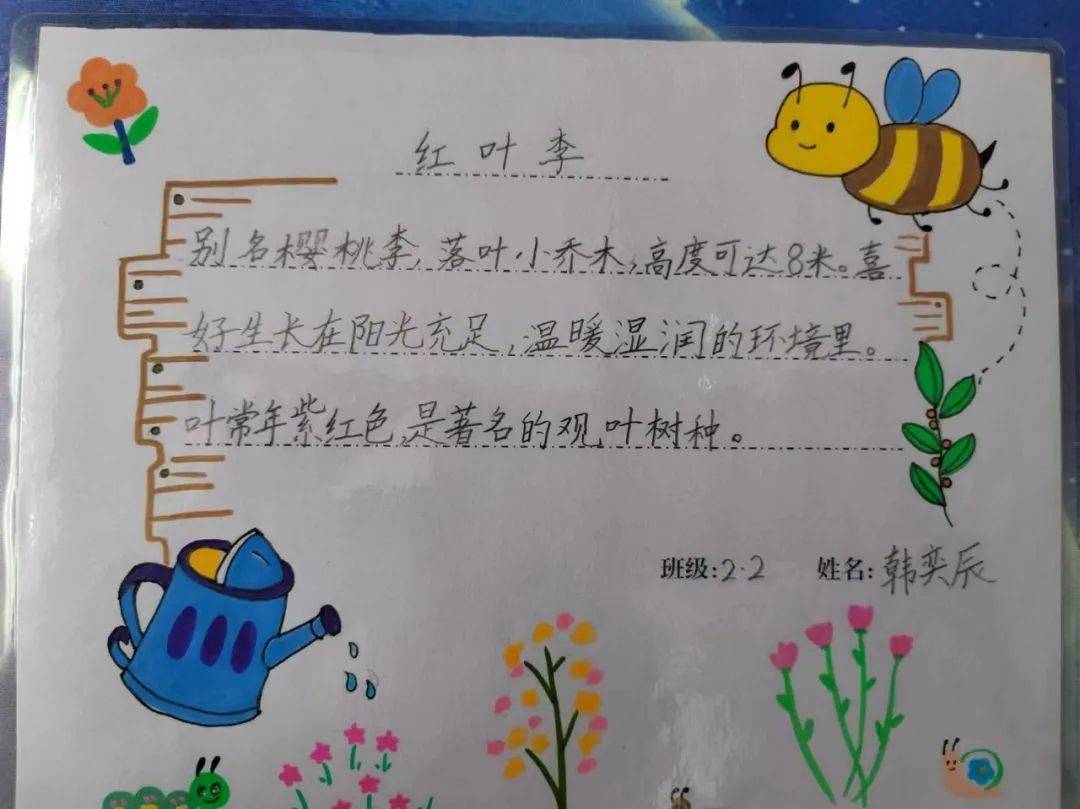 红叶李
别名樱桃李,落叶小乔木,高度可达8米。喜
好生长在阳光充足,温暖湿润的环境里。
叶常年紫红色,是著名的观叶树种。
班级:2.2 姓名:韩奕辰